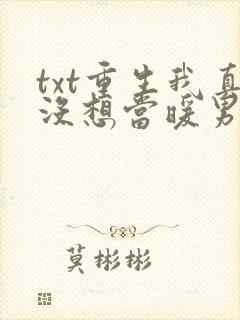 txt重生我真
没想当暖男
莫彬彬